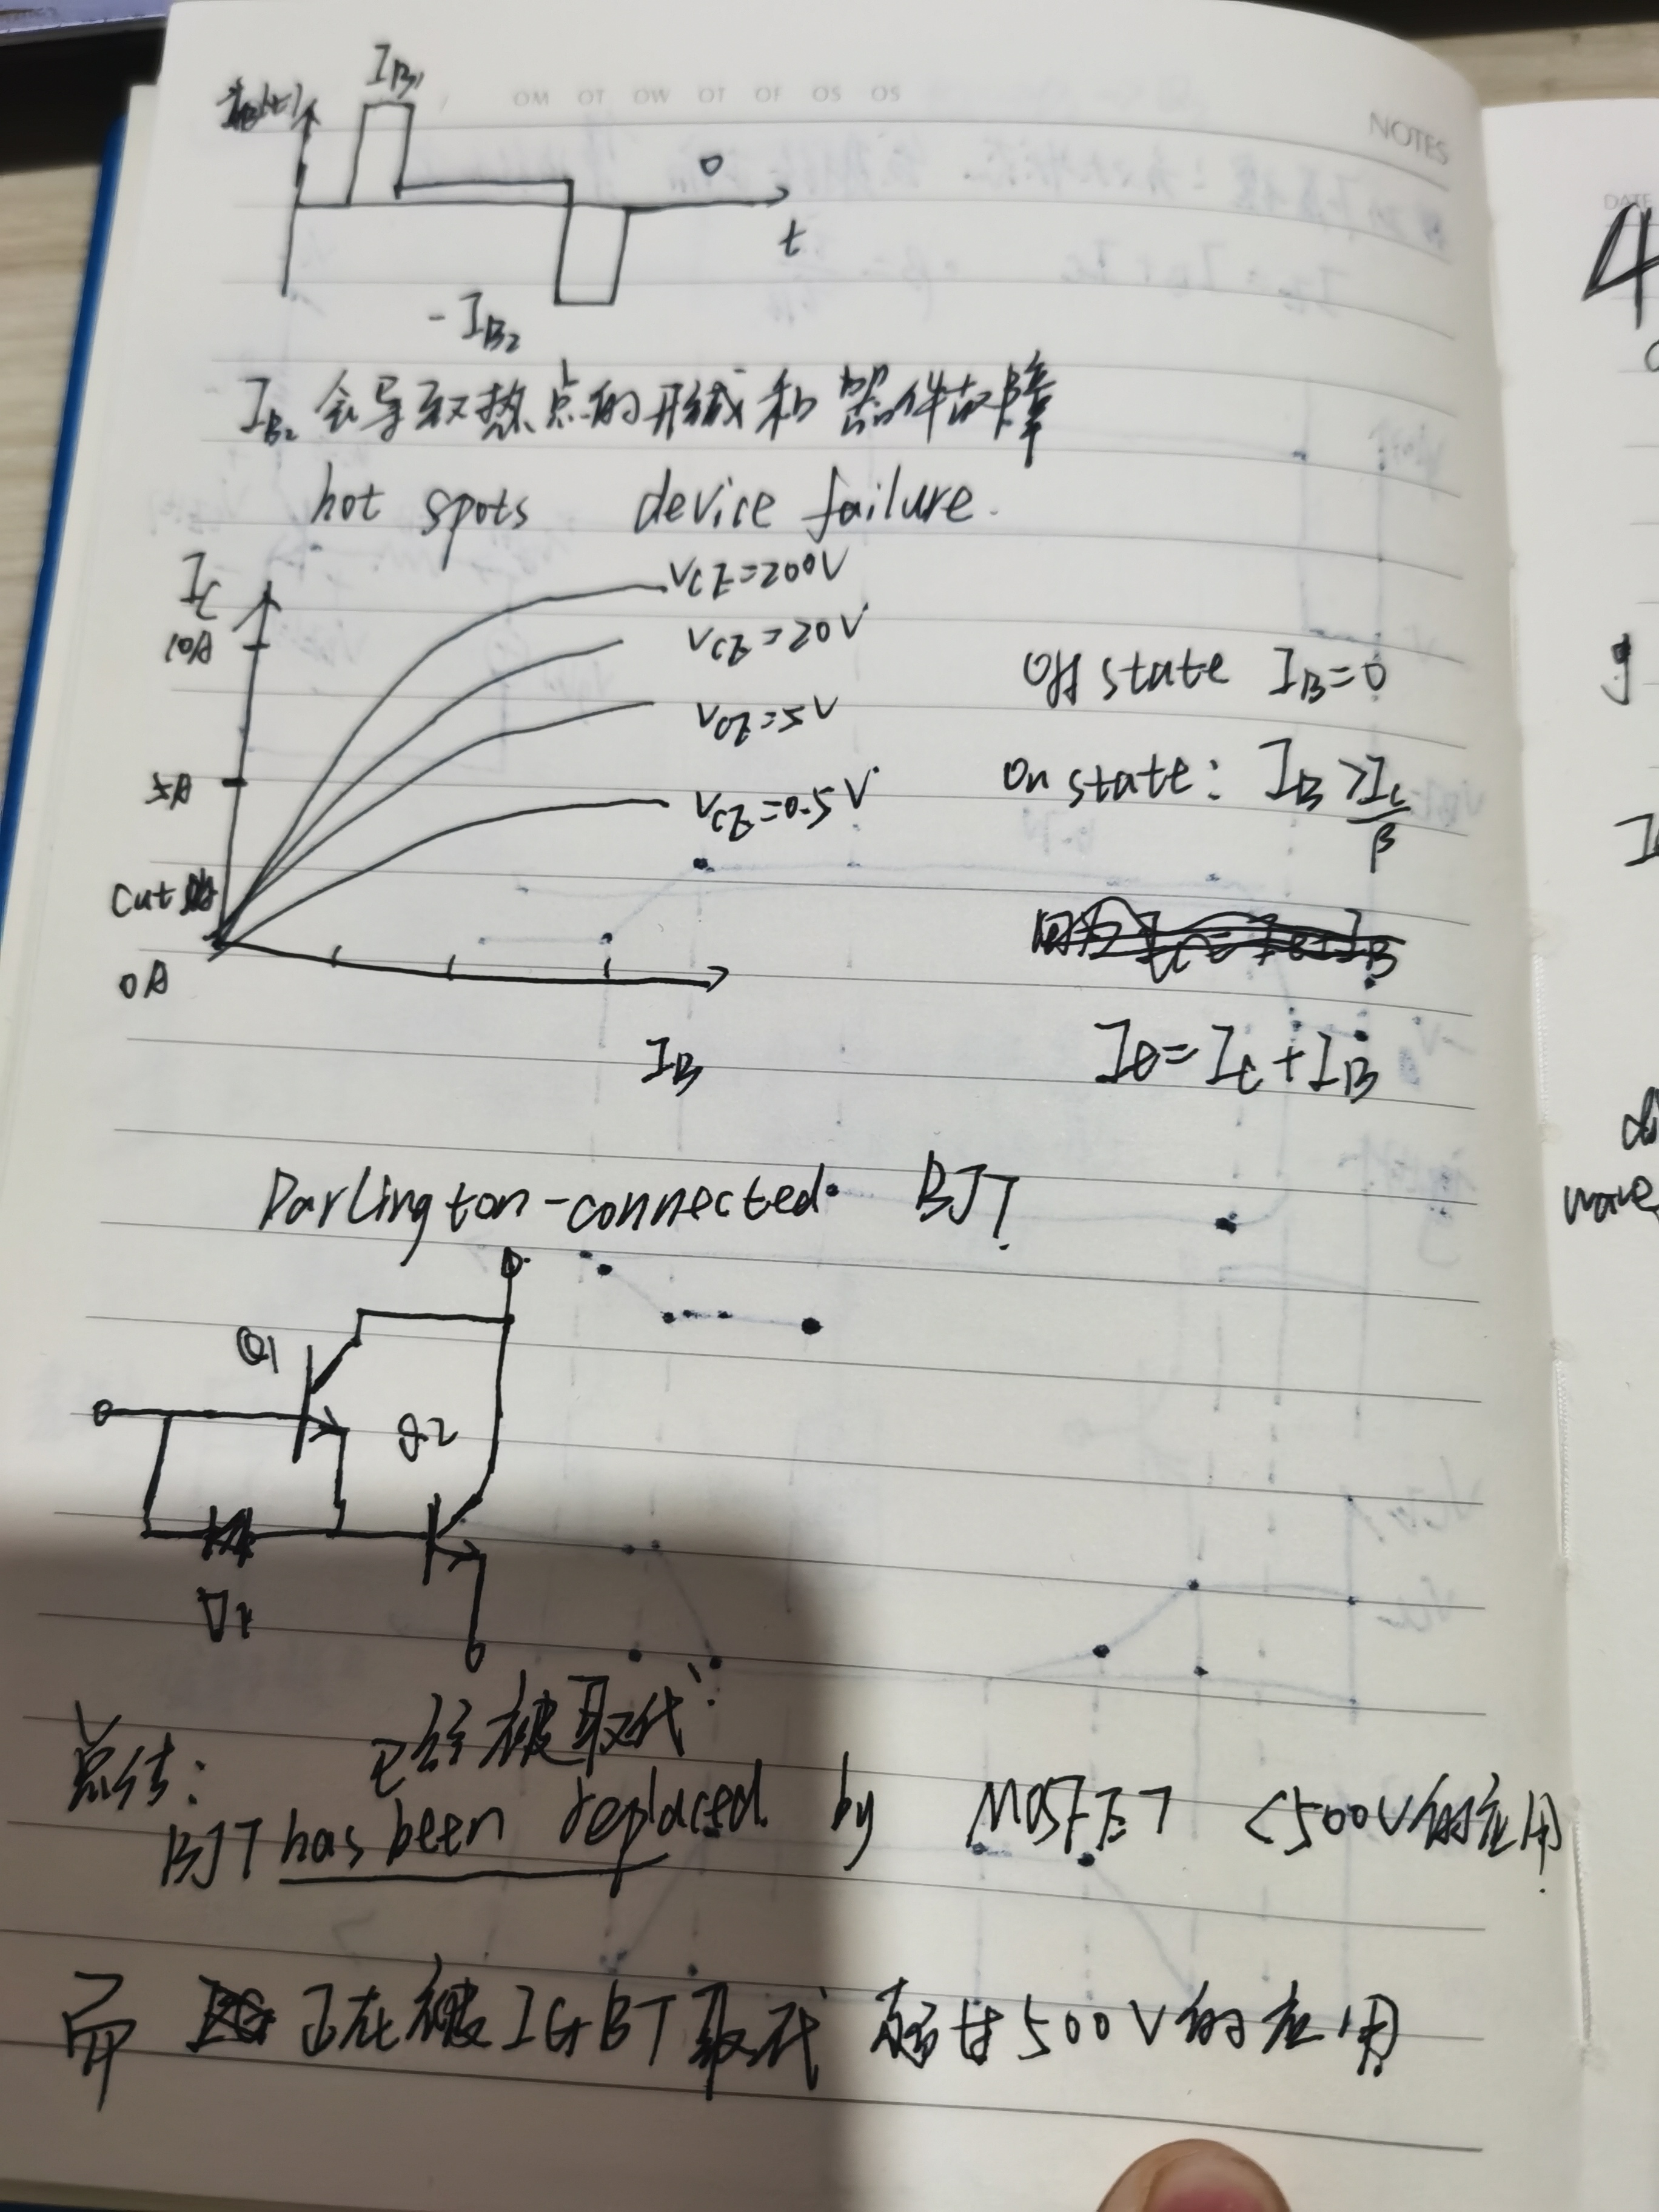 I_B1
i_B(t)
OM OT OW OT OF OS OS
NOTES
DATE
0
t
-I_B2
I_B2 会导致热点的形成和器件故障
hot spots device failure.
I_C
10A
5A
cut
0A
V_CE=200V
V_CE=20V
V_CE=5V
V_CE=0.5V
I_B
Off state I_B=0
On state: I_B>I_C/β
Ie=I_C+I_B
Darlington-connected BJT
Q1
Q2
D1
总结: 已经被取代
BJT has been replaced by MOSFET <500V的应用
而 正在被IGBT取代 高于500V的应用
4
wave